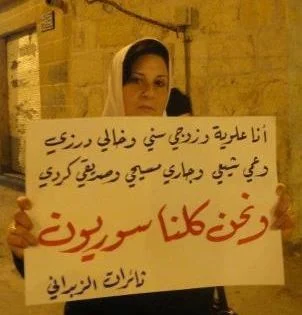 أنا علوية وزوجي سني وخالي درزي
وعمي شيعي وجاري مسيحي وصديقي كردي
ونحن كلنا سوريون
ثائرات الزبداني